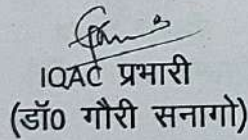 IQAC प्रभारी
(डॉ0 गौरी सनागो)